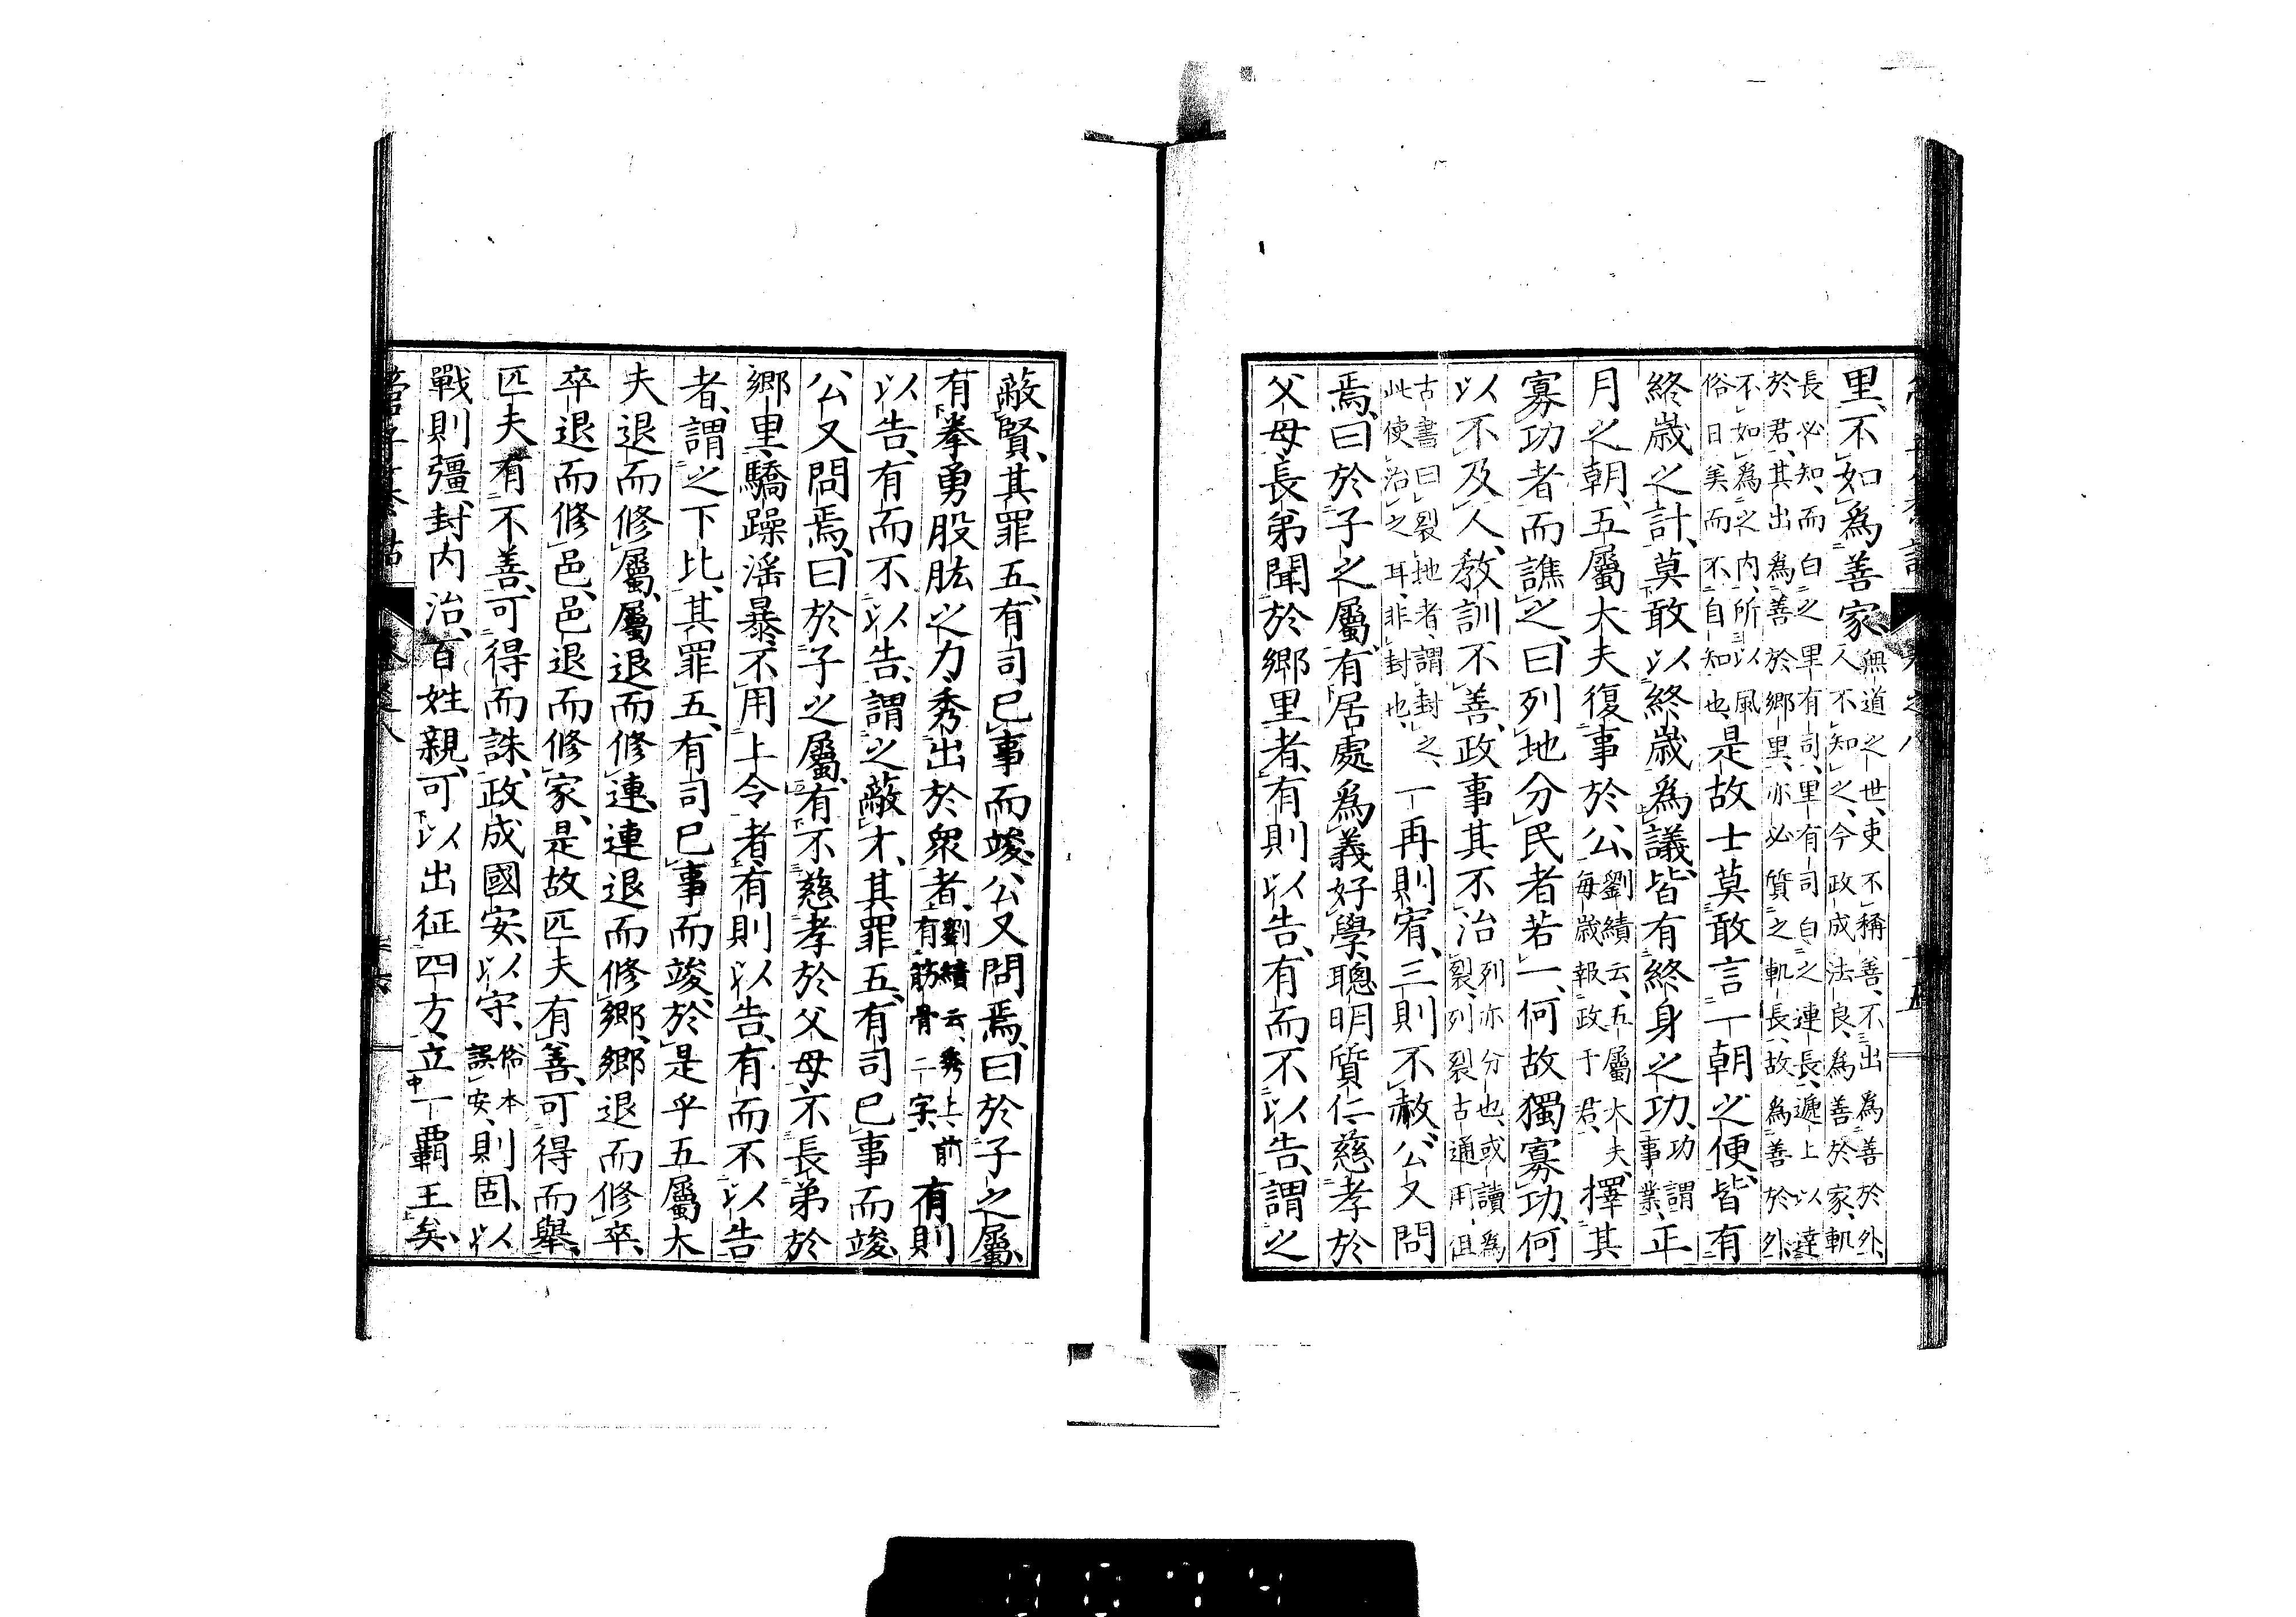 里、不如爲善家、無道之世、吏不稱善、不出爲善於外、人不知之、今政成法良、爲善於家、軌
長必知、而白之里有司、里有司白之連長、遞上以達於君、其出爲善於鄉里、亦必質之軌長、故爲善於外、
不如爲之内、所以風俗日美而不自知也、是故士莫敢言一朝之便、皆有
終歲之計、莫敢以終歲爲議、皆有終身之功、功謂事業、正
月之朝、五屬大夫復事於公、劉績云、五屬大夫、每歲報政于君、擇其
寡功者而譙之、曰列地分民者若一、何故獨寡功、何
以不及人、教訓不善、政事其不治、列亦分也、或讀爲裂、列裂古通用、但
古書曰裂地者、謂封之、此使治之耳、非封也、一再則宥、三則不赦、公又問
焉、曰於子之屬、有居處爲義好學聰明質仁、慈孝於
父母、長弟聞於鄉里者、有則以告、有而不以告、謂之
蔽賢、其罪五、有司已事而竣、公又問焉、曰於子之屬、
有拳勇股肱之力、秀出於衆者、劉績云、秀上、前有筋骨二字、有則
以告、有而不以告、謂之蔽才、其罪五、有司已事而竣、
公又問焉、曰於子之屬、有不慈孝於父母、不長弟於
鄉里、驕躁淫暴、不用上令者、有則以告、有而不以告
者、謂之下比、其罪五、有司已事而竣、於是乎五屬大
夫退而修屬、屬退而修連、連退而修鄉、鄉退而修卒、
卒退而修邑、邑退而修家、是故匹夫有善、可得而舉、
匹夫有不善、可得而誅、政成國安、以守、俗本誤安、則固、以
戰則彊、封内治、百姓親、可以出征四方、立一霸王矣、